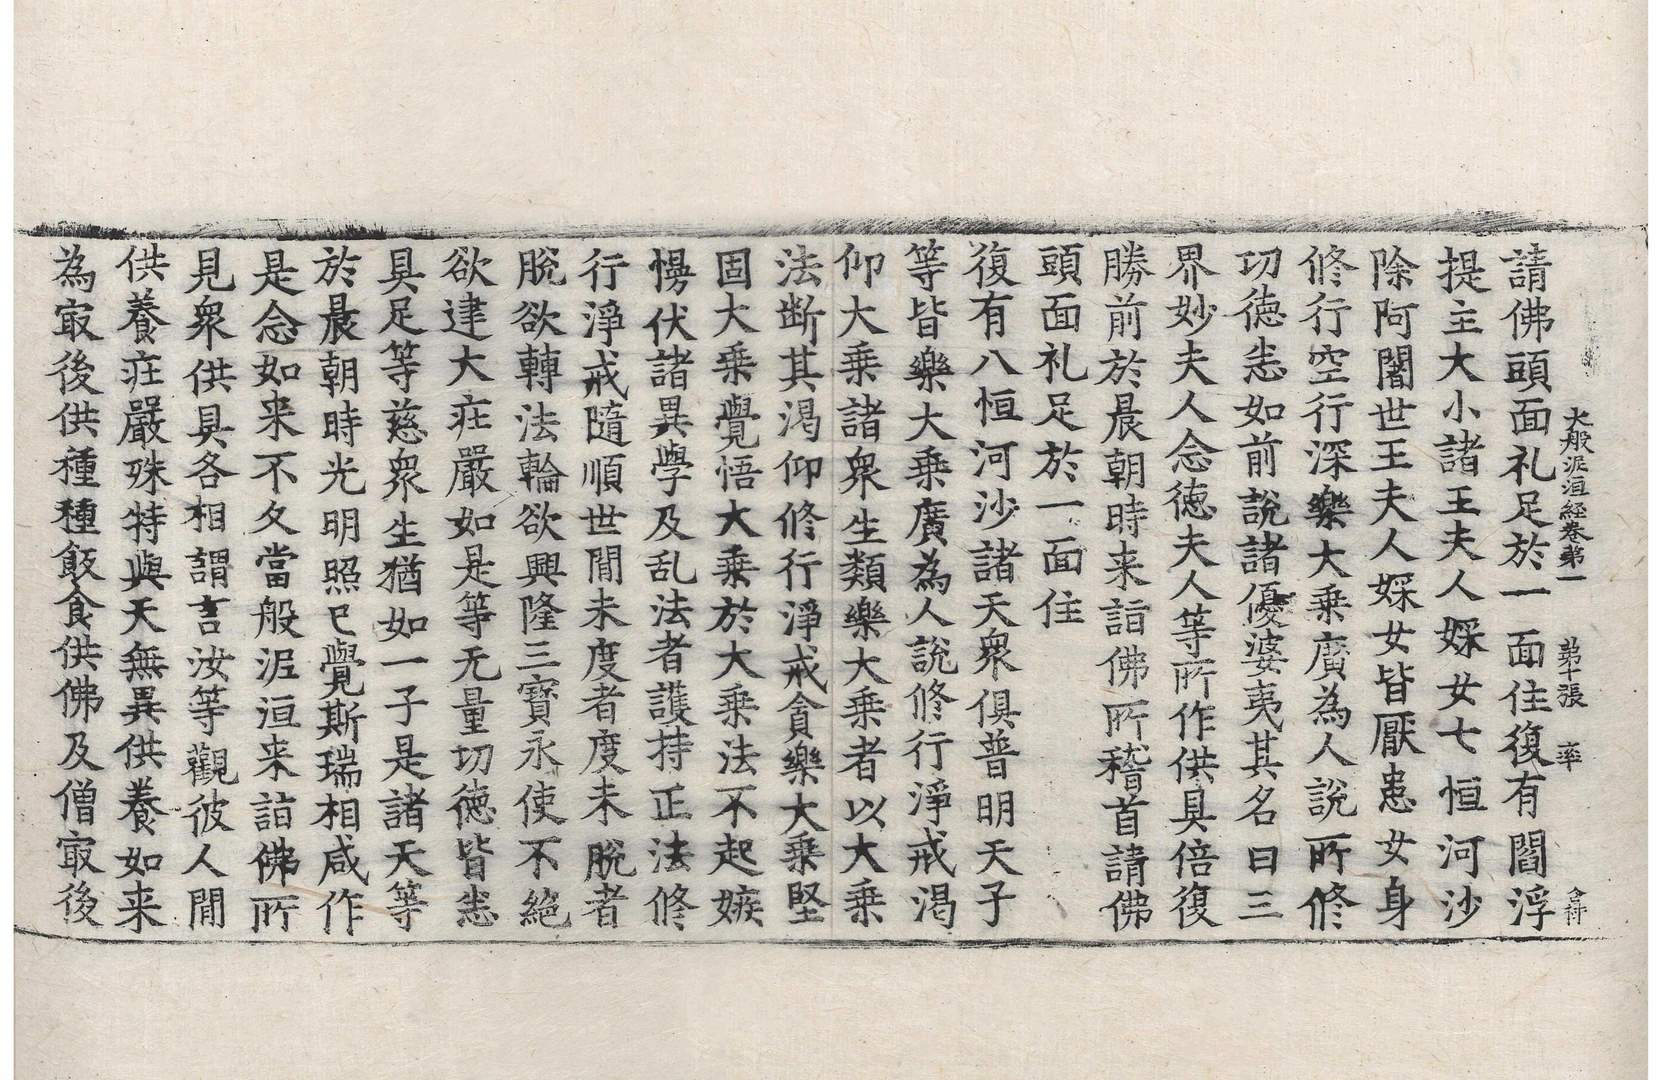 大般泥洹経卷苐一　苐十張　率
請佛頭面礼足於一面住復有閻浮
提主大小諸王夫人婇女七恒河沙
除阿闍世王夫人婇女皆厭患女身
修行空行深樂大乗廣為人說所修
切德悉如前說諸優婆夷其名曰三
界妙夫人念德夫人等所作供具倍復
勝前於晨朝時来詣佛所稽首請佛
頭面礼足於一面住
復有八恒河沙諸天衆俱普明天子
等皆樂大乗廣為人說修行淨戒渴
仰大乗諸衆生類樂大乗者以大乗
法断其渴仰修行淨戒貪樂大乗堅
固大乗覺悟大乗於大乗法不起嫉
慢伏諸異學及乱法者護持正法修
行淨戒隨順世間未度者度未脫者
脫欲轉法輪欲興隆三寶永使不絕
欲建大莊嚴如是等无量切德皆悉
具足等慈衆生猶如一子是諸天等
於晨朝時光明照已覺斯瑞相咸作
是念如来不久當般泥洹来詣佛所
見衆供具各相謂言汝等觀彼人間
供養莊嚴殊特與天無異供養如来
為㝡後供種種飯食供佛及僧㝡後